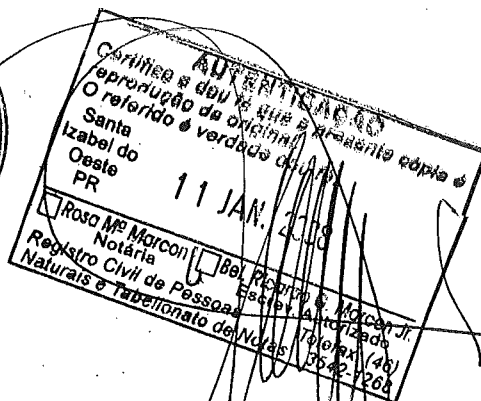 AUTENTICAÇÃO
Certifico e dou fé que a presente cópia é
reprodução do original
O referido é verdade dou fé
Santa
Izabel do
Oeste
PR
11 JAN. 2008
Rosa Mª Marcon
Notária
Bel. Ricardo G. Marcon Jr.
Escrev. Autorizado
Registro Civil de Pessoas
Naturais e Tabelionato de Notas
Telefax: (46)
3542-1268